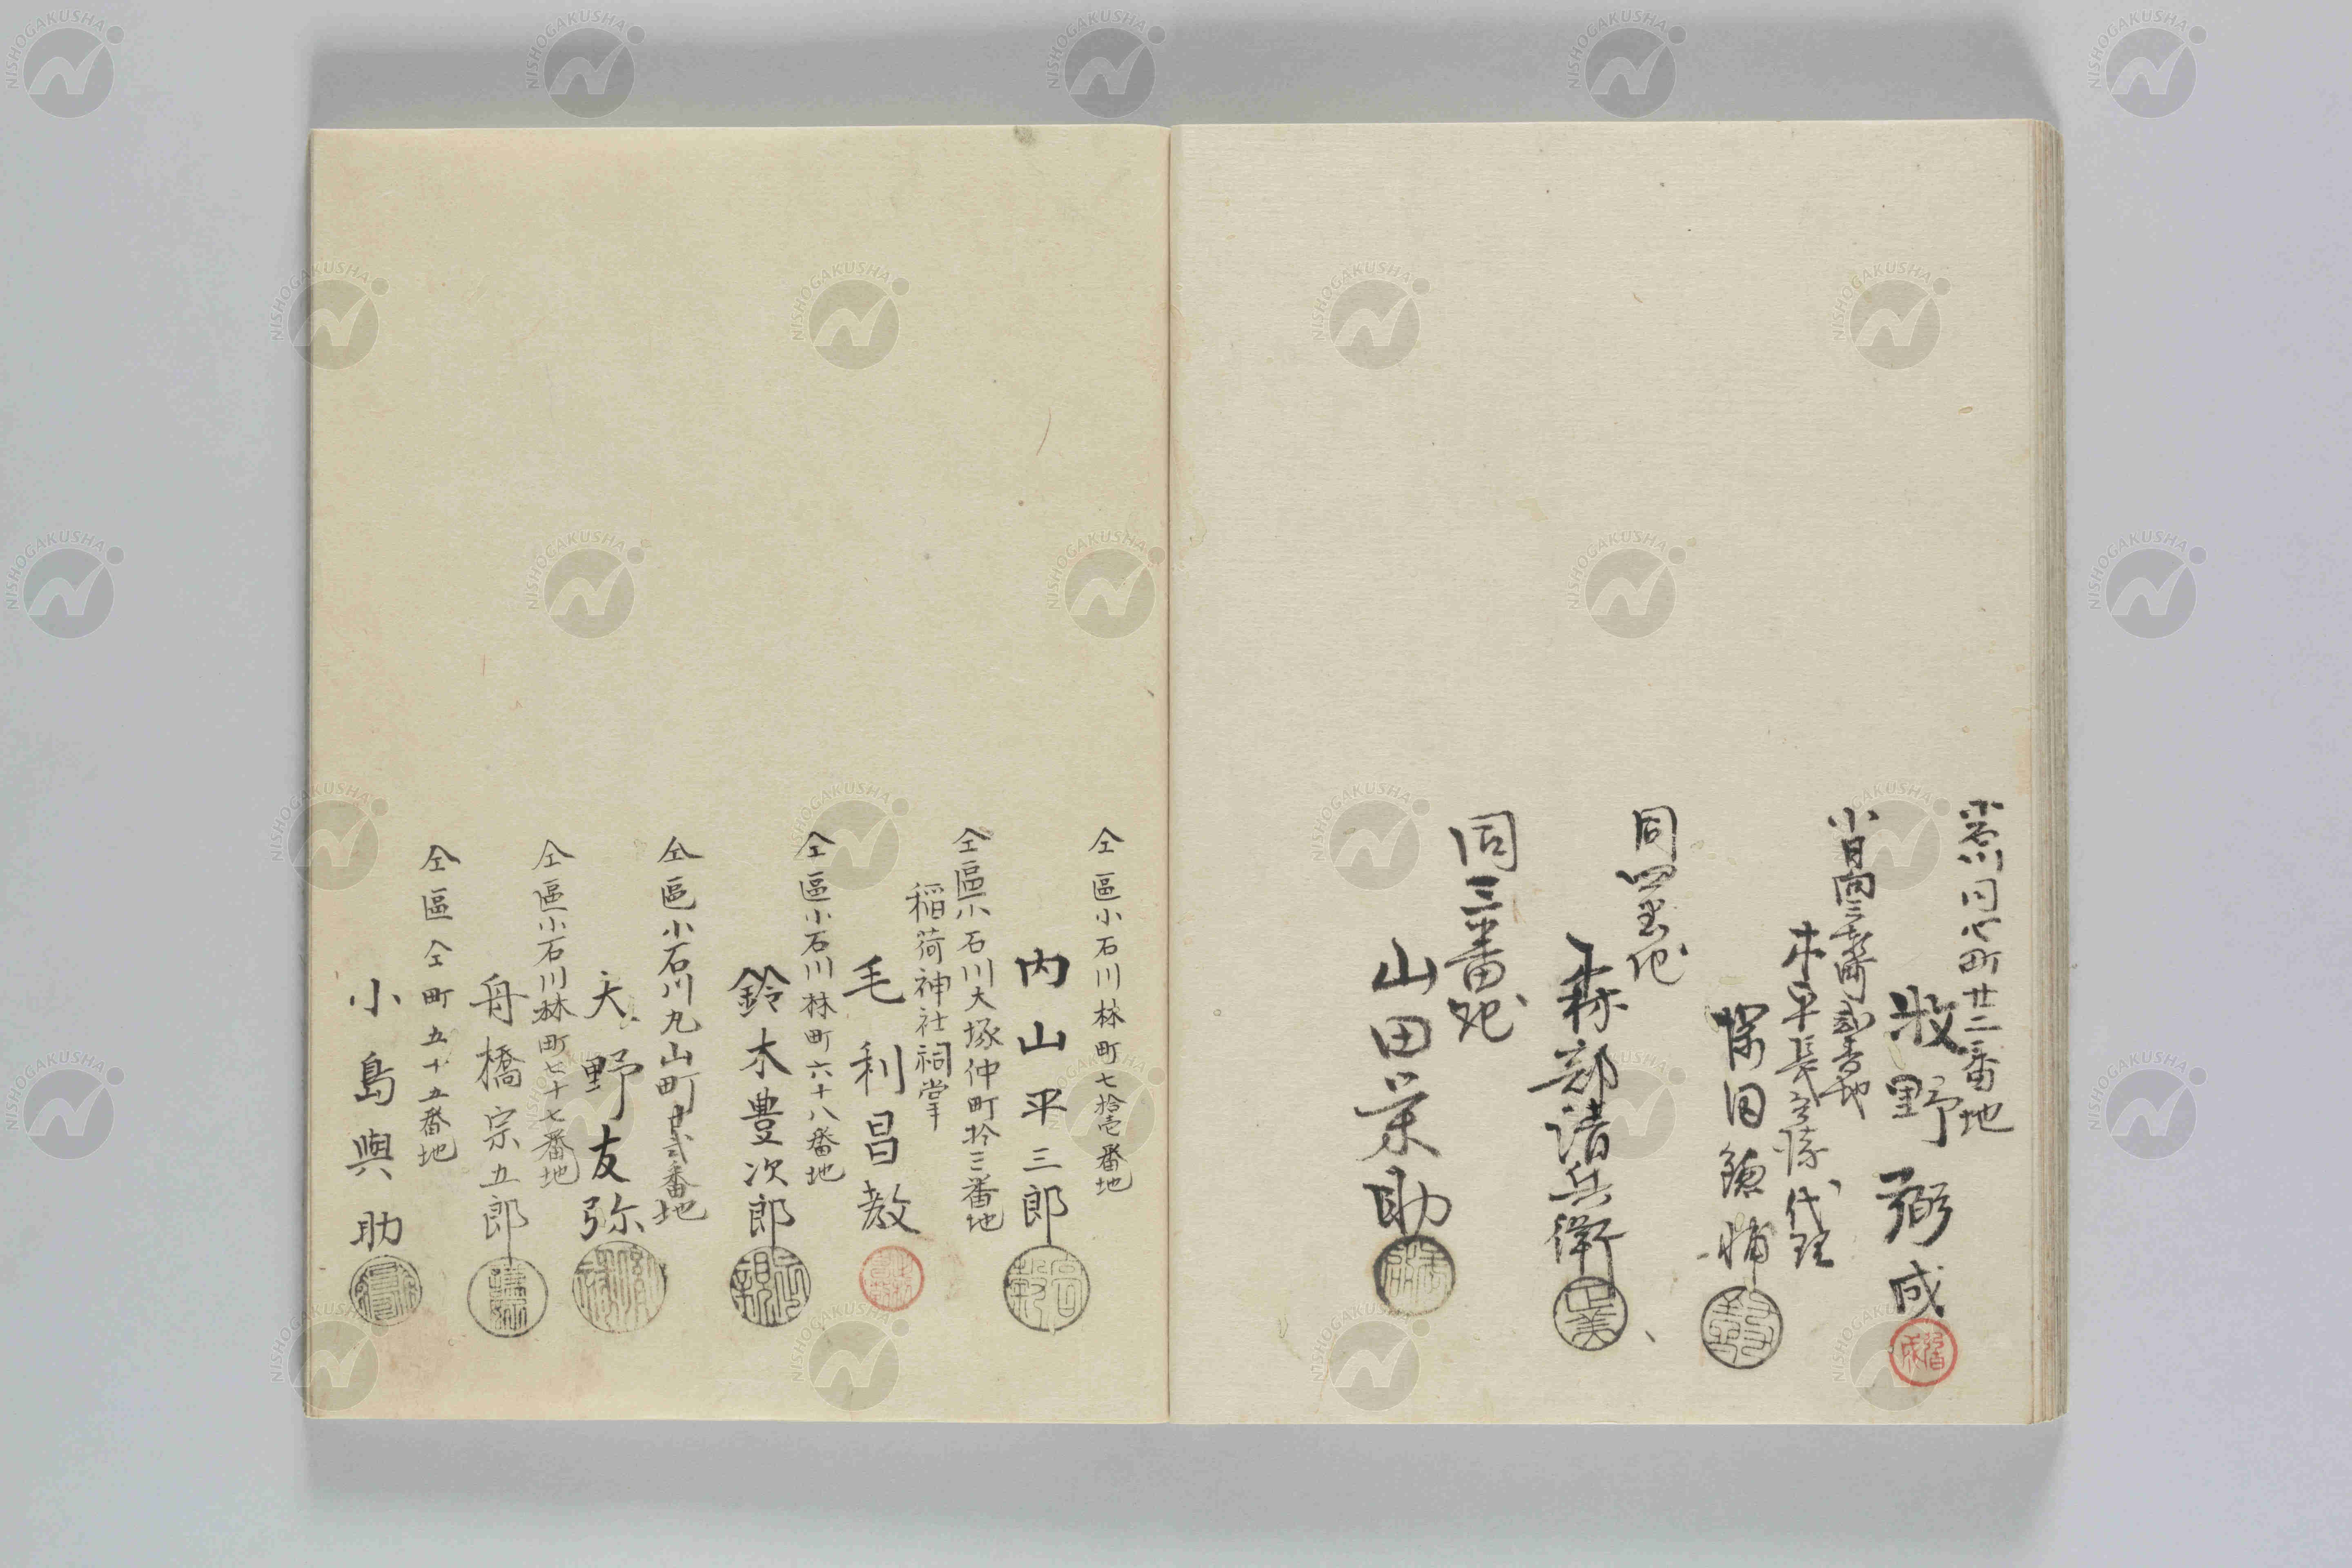 小石川同心町廿二番地
牧野弼成
小日向三軒町弐番地
同四番地
森部清兵衛
同三番地
山田栄助
仝區小石川林町七拾壱番地
内山平三郎
仝區小石川大塚仲町拾三番地
稲荷神社祠掌
毛利昌教
仝區小石川林町六十八番地
鈴木豊次郎
仝區小石川丸山町廿弐番地
天野友弥
仝區小石川林町七十七番地
舟橋宗五郎
仝區仝町五十五番地
小島與助
NISHOGAKUSHA